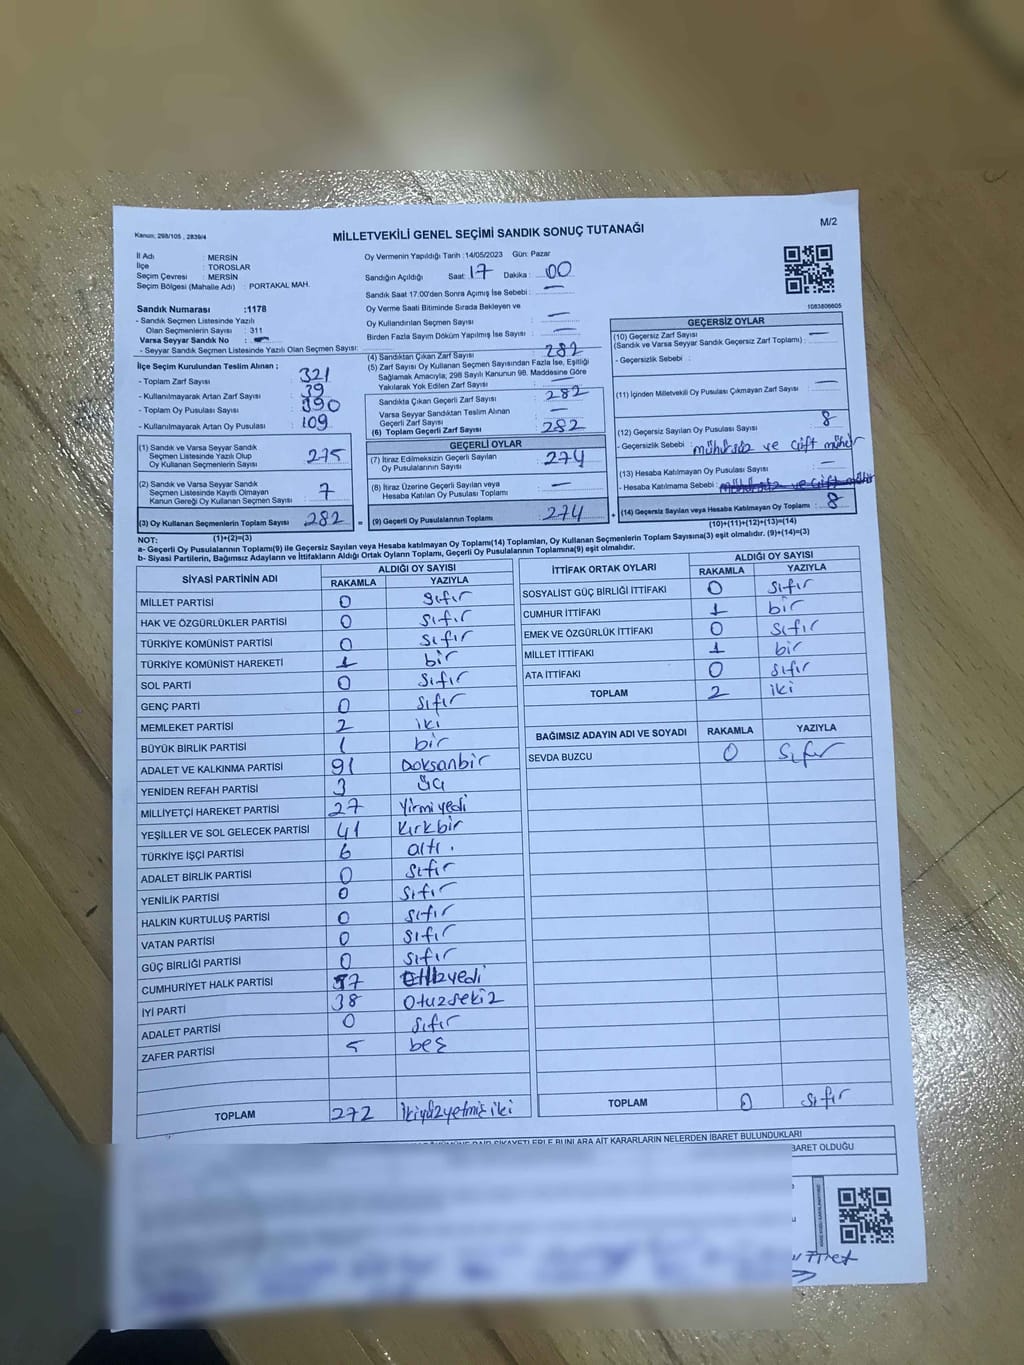 M/2
Kanun: 298/105 , 2839/4
MİLLETVEKİLİ GENEL SEÇİMİ SANDIK SONUÇ TUTANAĞI
İl Adı : MERSİN
İlçe : TOROSLAR
Seçim Çevresi : MERSİN
Seçim Bölgesi (Mahalle Adı) : PORTAKAL MAH.
Sandık Numarası :1178
- Sandık Seçmen Listesinde Yazılı
Olan Seçmenlerin Sayısı : 311
Varsa Seyyar Sandık No : —
- Seyyar Sandık Seçmen Listesinde Yazılı Olan Seçmen Sayısı:
Oy Vermenin Yapıldığı Tarih :14/05/2023 Gün: Pazar
Sandığın Açıldığı Saat: 17 Dakika : 00
Sandık Saat 17:00'den Sonra Açılmış İse Sebebi : —
Oy Verme Saati Bitiminde Sırada Bekleyen ve
Oy Kullandırılan Seçmen Sayısı : —
Birden Fazla Sayım Döküm Yapılmış İse Sayısı : —
1083806605
İlçe Seçim Kurulundan Teslim Alınan ;
- Toplam Zarf Sayısı : 321
- Kullanılmayarak Artan Zarf Sayısı : 39
- Toplam Oy Pusulası Sayısı : 390
- Kullanılmayarak Artan Oy Pusulası : 109
(1) Sandık ve Varsa Seyyar Sandık
Seçmen Listesinde Yazılı Olup
Oy Kullanan Seçmenlerin Sayısı : 275
(2) Sandık ve Varsa Seyyar Sandık
Seçmen Listesinde Kayıtlı Olmayan
Kanun Gereği Oy Kullanan Seçmen Sayısı : 7
(3) Oy Kullanan Seçmenlerin Toplam Sayısı : 282
(4) Sandıktan Çıkan Zarf Sayısı : 282
(5) Zarf Sayısı Oy Kullanan Seçmen Sayısından Fazla İse, Eşitliği
Sağlamak Amacıyla; 298 Sayılı Kanunun 98. Maddesine Göre
Yakılarak Yok Edilen Zarf Sayısı : —
Sandıkta Çıkan Geçerli Zarf Sayısı : 282
Varsa Seyyar Sandıktan Teslim Alınan
Geçerli Zarf Sayısı : —
(6) Toplam Geçerli Zarf Sayısı : 282
GEÇERLİ OYLAR
(7) İtiraz Edilmeksizin Geçerli Sayılan
Oy Pusulalarının Sayısı : 274
(8) İtiraz Üzerine Geçerli Sayılan veya
Hesaba Katılan Oy Pusulası Toplamı : —
= (9) Geçerli Oy Pusulalarının Toplamı : 274
GEÇERSİZ OYLAR
(10) Geçersiz Zarf Sayısı : —
(Sandık ve Varsa Seyyar Sandık Geçersiz Zarf Toplamı) :
- Geçersizlik Sebebi :
(11) İçinden Milletvekili Oy Pusulası Çıkmayan Zarf Sayısı : —
(12) Geçersiz Sayılan Oy Pusulası Sayısı : 8
- Geçersizlik Sebebi : mühürsüz ve çift mühür
(13) Hesaba Katılmayan Oy Pusulası Sayısı : —
- Hesaba Katılmama Sebebi : mühürsüz ve çift mühür
+ (14) Geçersiz Sayılan veya Hesaba Katılmayan Oy Toplamı : 8
(10)+(11)+(12)+(13)=(14)
NOT: (1)+(2)=(3)
a- Geçerli Oy Pusulaları Toplamı(9) ile Geçersiz Sayılan veya Hesaba katılmayan Oy Toplamı(14) Toplamları, Oy Kullanan Seçmenlerin Toplam Sayısına(3) eşit olmalıdır. (9)+(14)=(3)
b- Siyasi Partilerin, Bağımsız Adayların ve İttifakların Aldığı Ortak Oyların Toplamı, Geçerli Oy Pusulalarının Toplamına(9) eşit olmalıdır.
SİYASİ PARTİNİN ADI ALDIĞI OY SAYISI
RAKAMLA YAZIYLA
MİLLET PARTİSİ 0 sıfır
HAK VE ÖZGÜRLÜKLER PARTİSİ 0 sıfır
TÜRKİYE KOMÜNİST PARTİSİ 0 sıfır
TÜRKİYE KOMÜNİST HAREKETİ 1 bir
SOL PARTİ 0 sıfır
GENÇ PARTİ 0 sıfır
MEMLEKET PARTİSİ 2 iki
BÜYÜK BİRLİK PARTİSİ 1 bir
ADALET VE KALKINMA PARTİSİ 91 Doksanbir
YENİDEN REFAH PARTİSİ 3 üç
MİLLİYETÇİ HAREKET PARTİSİ 27 Yirmiyedi
YEŞİLLER VE SOL GELECEK PARTİSİ 41 Kırkbir
TÜRKİYE İŞÇİ PARTİSİ 6 altı .
ADALET BİRLİK PARTİSİ 0 sıfır
YENİLİK PARTİSİ 0 sıfır
HALKIN KURTULUŞ PARTİSİ 0 sıfır
VATAN PARTİSİ 0 sıfır
GÜÇ BİRLİĞİ PARTİSİ 0 sıfır
CUMHURİYET HALK PARTİSİ 57 Elliyedi
İYİ PARTİ 38 Otuzsekiz
ADALET PARTİSİ 0 sıfır
ZAFER PARTİSİ 5 beş
TOPLAM 272 İkiyüzyetmişiki
İTTİFAK ORTAK OYLARI ALDIĞI OY SAYISI
RAKAMLA YAZIYLA
SOSYALİST GÜÇ BİRLİĞİ İTTİFAKI 0 sıfır
CUMHUR İTTİFAKI 1 bir
EMEK VE ÖZGÜRLÜK İTTİFAKI 0 sıfır
MİLLET İTTİFAKI 1 bir
ATA İTTİFAKI 0 sıfır
TOPLAM 2 iki
BAĞIMSIZ ADAYIN ADI VE SOYADI RAKAMLA YAZIYLA
SEVDA BUZCU 0 sıfır
TOPLAM 0 sıfır
ŞİKAYETLERLE BUNLARA AİT KARARLARIN NELERDEN İBARET BULUNDUKLARI
BARET OLDUĞU